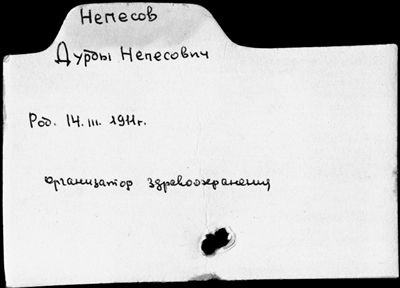 Непесов
Дурды Непесович
Род. 14.III.1911г.
организатор здравоохранения